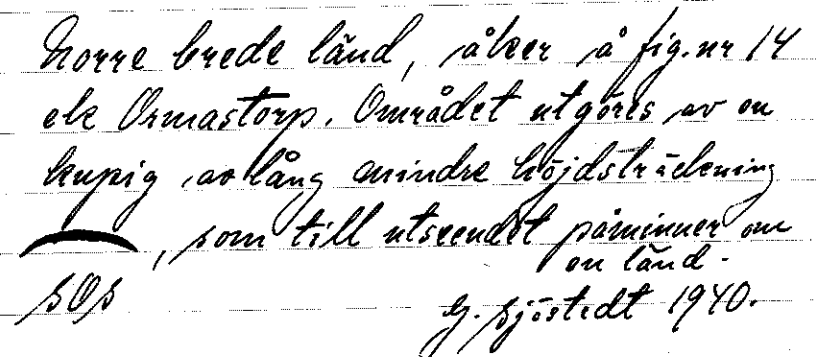 Norre brede länd, åker å fig. nr 14
ek Ormastorp. Området utgöres av en
kupig avlång mindre höjdsträckning
, som till utseendet påminner om
en länd.
sOs
G. Sjöstedt 1940.